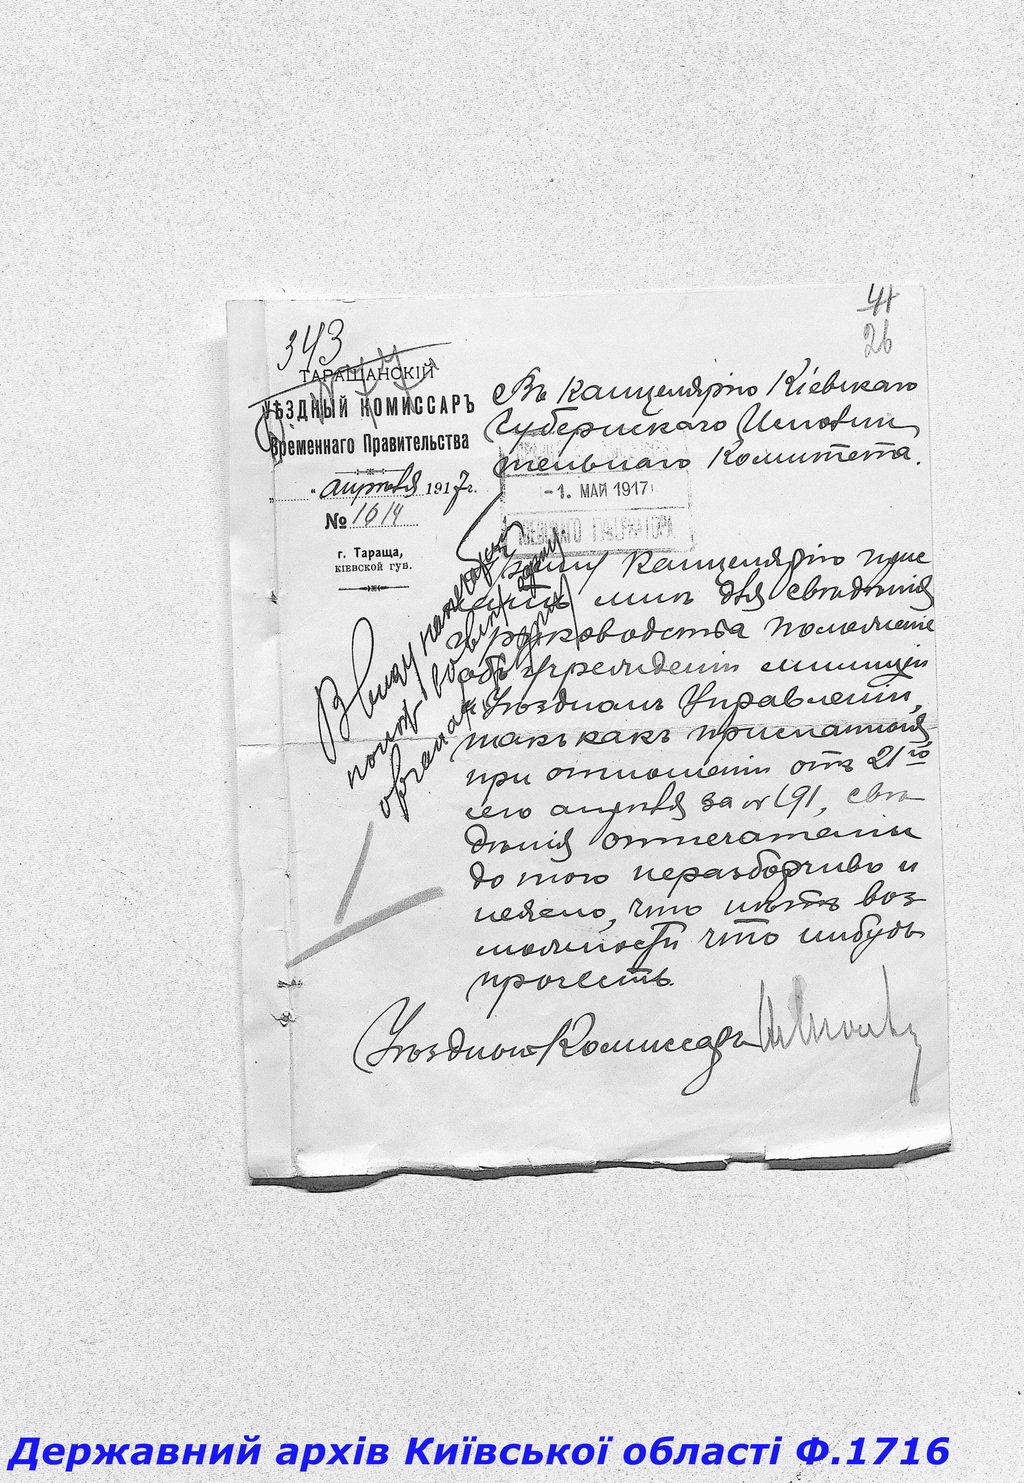 343
41
26
ТАРАЩАНСКІЙ
УѢЗДНЫЙ КОМИССАРЪ
Временнаго Правительства
апрѣля 1917 г.
№ 1614
г. Тараща,
КІЕВСКОЙ ГУБ.
Въ Канцелярію Кіевскаго
Губернскаго Исполни
тельнаго Комитета.
-1. МАЙ 1917
КІЕВСКАГО ГУБЕРНАТОРА
Прошу Канцелярію прис
лать мнѣ для свѣдѣнія
и руководства положеніе
объ учрежденіи милиціи
и Уѣздномъ Управленіи,
такъ какъ присланныя
при отношеніи отъ 21го
сего апрѣля за № 191, свѣ
дѣнія отпечатаны
до того неразборчиво и
неясно, что нѣтъ воз
можности что нибудь
прочесть.
В виду
Уѣздный Комиссаръ
Державний архів Київської області Ф.1716